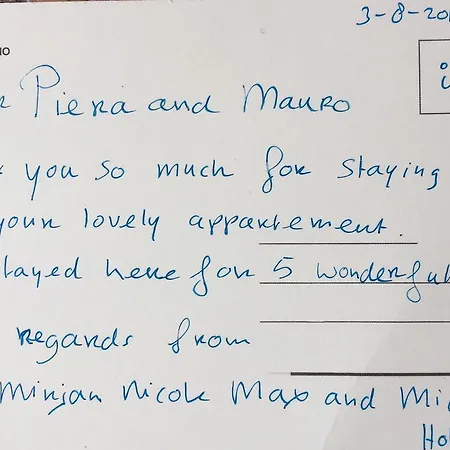 3-8-20
NO
Piera and Mauro
you so much for staying
your lovely appartement.
stayed here for 5 wonderful
regards from
Mirjan Nicole Max and Mi
Ho